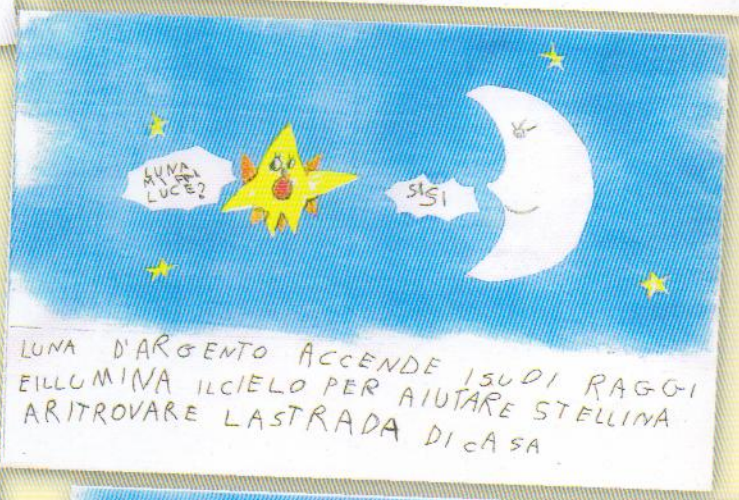 LUNA
MI FAI
LUCE?
SISI
LUNA D'ARGENTO ACCENDE ISUDI RAGGI
EILLUMINA ILCIELO PER AIUTARE STELLINA
ARITROVARE LASTRADA DICASA